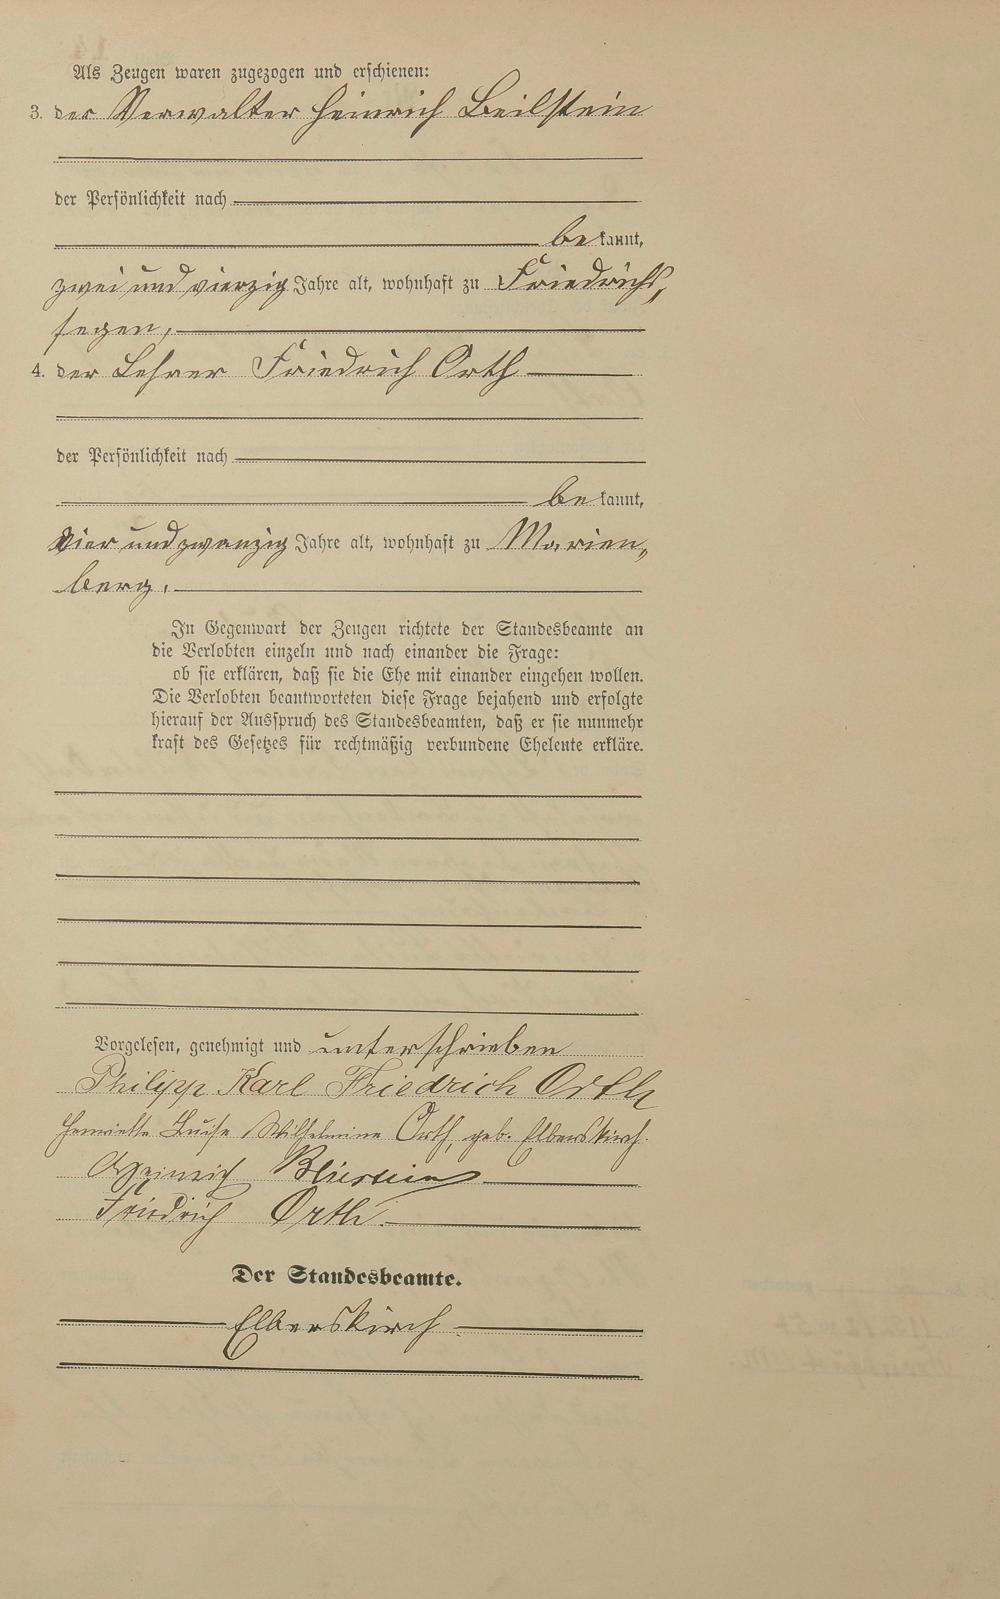 Als Zeugen waren zugezogen und erschienen:
3. der Verwalter Heinrich Beilstein
der Persönlichkeit nach
be kannt,
zwei und vierzig Jahre alt, wohnhaft zu Friedrichs,
segen,
4. der Lehrer Friedrich Orth
der Persönlichkeit nach
be kannt,
vier und zwanzig Jahre alt, wohnhaft zu Marien„
berg.
In Gegenwart der Zeugen richtete der Standesbeamte an
die Verlobten einzeln und nach einander die Frage:
ob sie erklären, daß sie die Ehe mit einander eingehen wollen.
Die Verlobten beantworteten diese Frage bejahend und erfolgte
hierauf der Ausspruch des Standesbeamten, daß er sie nunmehr
kraft des Gesetzes für rechtmäßig verbundene Eheleute erkläre.
Vorgelesen, genehmigt und unterschrieben
Philipp Karl Friedrich Orth
Henriette Luise Wilhelmine Orth, geb. Elberskirch.
Heinrich Beilstein
Friedrich Orth.
Der Standesbeamte.
Elberskirch